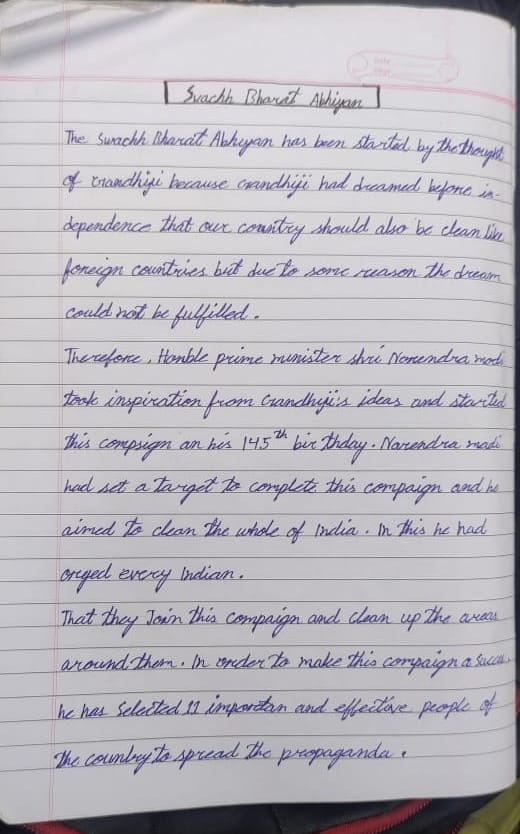 Date
Swachh Bharat Abhiyan
The Swachh Bharat Abhiyan has been started by the thought
of Grandhiji because Grandhiji had dreamed before in-
dependence that our country should also be clean like
foreign countries but due to some reason the dream
could not be fulfilled.
Therefore, Honble prime minister shri Norendra modi
took inspiration from Grandhiji's ideas and started
this compsign an his 145th birthday. Narendra madi
had set a target to complete this compaign and he
aimed to clean the whole of India. In this he had
orged every Indian.
That they Join this compaign and clean up the areas
around them. In order to make this compaign a succes,
he has Selected 11 importan and effective people of
the counbry to spread the propaganda.